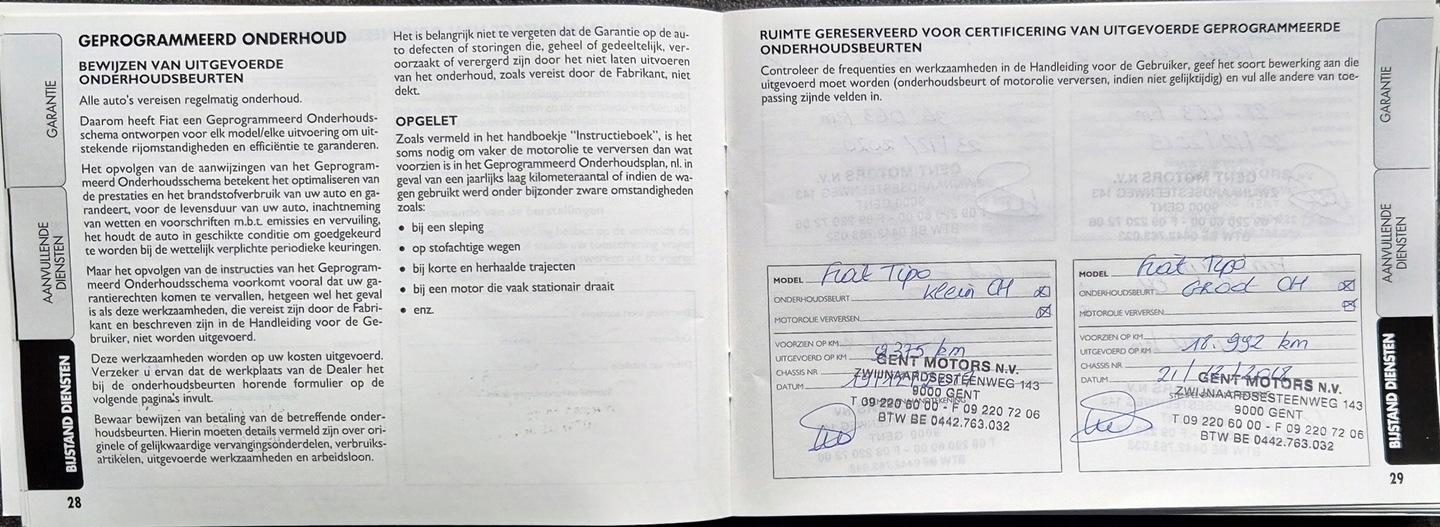 GARANTIE
AANVULLENDE
DIENSTEN
BIJSTAND DIENSTEN
GEPROGRAMMEERD ONDERHOUD
BEWIJZEN VAN UITGEVOERDE
ONDERHOUDSBEURTEN
Alle auto's vereisen regelmatig onderhoud.
Daarom heeft Fiat een Geprogrammeerd Onderhouds-
schema ontworpen voor elk model/elke uitvoering om uit-
stekende rijomstandigheden en efficiëntie te garanderen.
Het opvolgen van de aanwijzingen van het Geprogram-
meerd Onderhoudsschema betekent het optimaliseren van
de prestaties en het brandstofverbruik van uw auto en ga-
randeert, voor de levensduur van uw auto, inachtneming
van wetten en voorschriften m.b.t. emissies en vervuiling,
het houdt de auto in geschikte conditie om goedgekeurd
te worden bij de wettelijk verplichte periodieke keuringen.
Maar het opvolgen van de instructies van het Geprogram-
meerd Onderhoudsschema voorkomt vooral dat uw ga-
rantierechten komen te vervallen, hetgeen wel het geval
is als deze werkzaamheden, die vereist zijn door de Fabri-
kant en beschreven zijn in de Handleiding voor de Ge-
bruiker, niet worden uitgevoerd.
Deze werkzaamheden worden op uw kosten uitgevoerd.
Verzeker u ervan dat de werkplaats van de Dealer het
bij de onderhoudsbeurten horende formulier op de
volgende pagina's invult.
Bewaar bewijzen van betaling van de betreffende onder-
houdsbeurten. Hierin moeten details vermeld zijn over ori-
ginele of gelijkwaardige vervangingsonderdelen, verbruiks-
artikelen, uitgevoerde werkzaamheden en arbeidsloon.
28
Het is belangrijk niet te vergeten dat de Garantie op de au-
to defecten of storingen die, geheel of gedeeltelijk, ver-
oorzaakt of verergerd zijn door het niet laten uitvoeren
van het onderhoud, zoals vereist door de Fabrikant, niet
dekt.
OPGELET
Zoals vermeld in het handboekje "Instructieboek", is het
soms nodig om vaker de motorolie te verversen dan wat
voorzien is in het Geprogrammeerd Onderhoudsplan, nl. in
geval van een jaarlijks laag kilometeraantal of indien de wa-
gen gebruikt werd onder bijzonder zware omstandigheden
zoals:
• bij een sleping
• op stofachtige wegen
• bij korte en herhaalde trajecten
• bij een motor die vaak stationair draait
• enz.
RUIMTE GERESERVEERD VOOR CERTIFICERING VAN UITGEVOERDE GEPROGRAMMEERDE
ONDERHOUDSBEURTEN
Controleer de frequenties en werkzaamheden in de Handleiding voor de Gebruiker, geef het soort bewerking aan die
uitgevoerd moet worden (onderhoudsbeurt of motorolie verversen, indien niet gelijktijdig) en vul alle andere van toe-
passing zijnde velden in.
MODEL Fiat Tipo
ONDERHOUDSBEURT Klein OH
MOTOROLIE VERVERSEN
VOORZIEN OP KM
UITGEVOERD OP KM 9375 km
CHASSIS NR
DATUM
GENT MOTORS N.V.
ZWIJNAARDSESTEENWEG 143
9000 GENT
T 09 220 60 00 - F 09 220 72 06
BTW BE 0442.763.032
MODEL Fiat Tipo
ONDERHOUDSBEURT Groot OH
MOTOROLIE VERVERSEN
VOORZIEN OP KM
UITGEVOERD OP KM 18.992 km
CHASSIS NR
DATUM 21/12/2018
GENT MOTORS N.V.
ZWIJNAARDSESTEENWEG 143
9000 GENT
T 09 220 60 00 - F 09 220 72 06
BTW BE 0442.763.032
GARANTIE
AANVULLENDE
DIENSTEN
BIJSTAND DIENSTEN
29